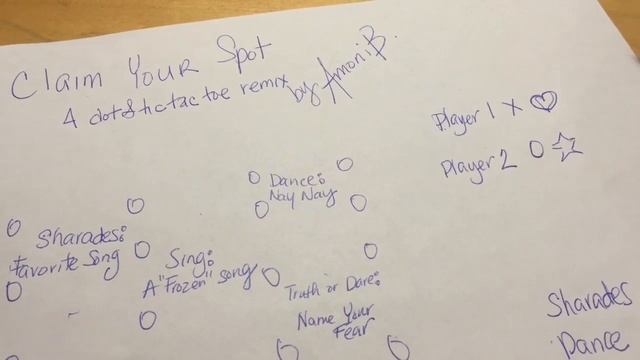 Claim Your Spot
A dot & tic tac toe remix by Amoni B.
Player 1 X ♡
Player 2 O ☆
Dance:
Nay Nay
Sharades:
Favorite Song
Sing:
A "Frozen" Song
Truth or Dare:
Name Your
Fear
Sharades
Dance